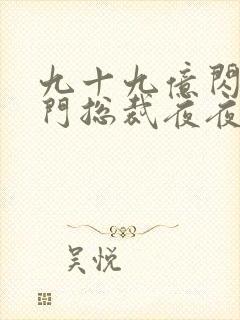 九十九億閃
門总裁夜夜
吴悦